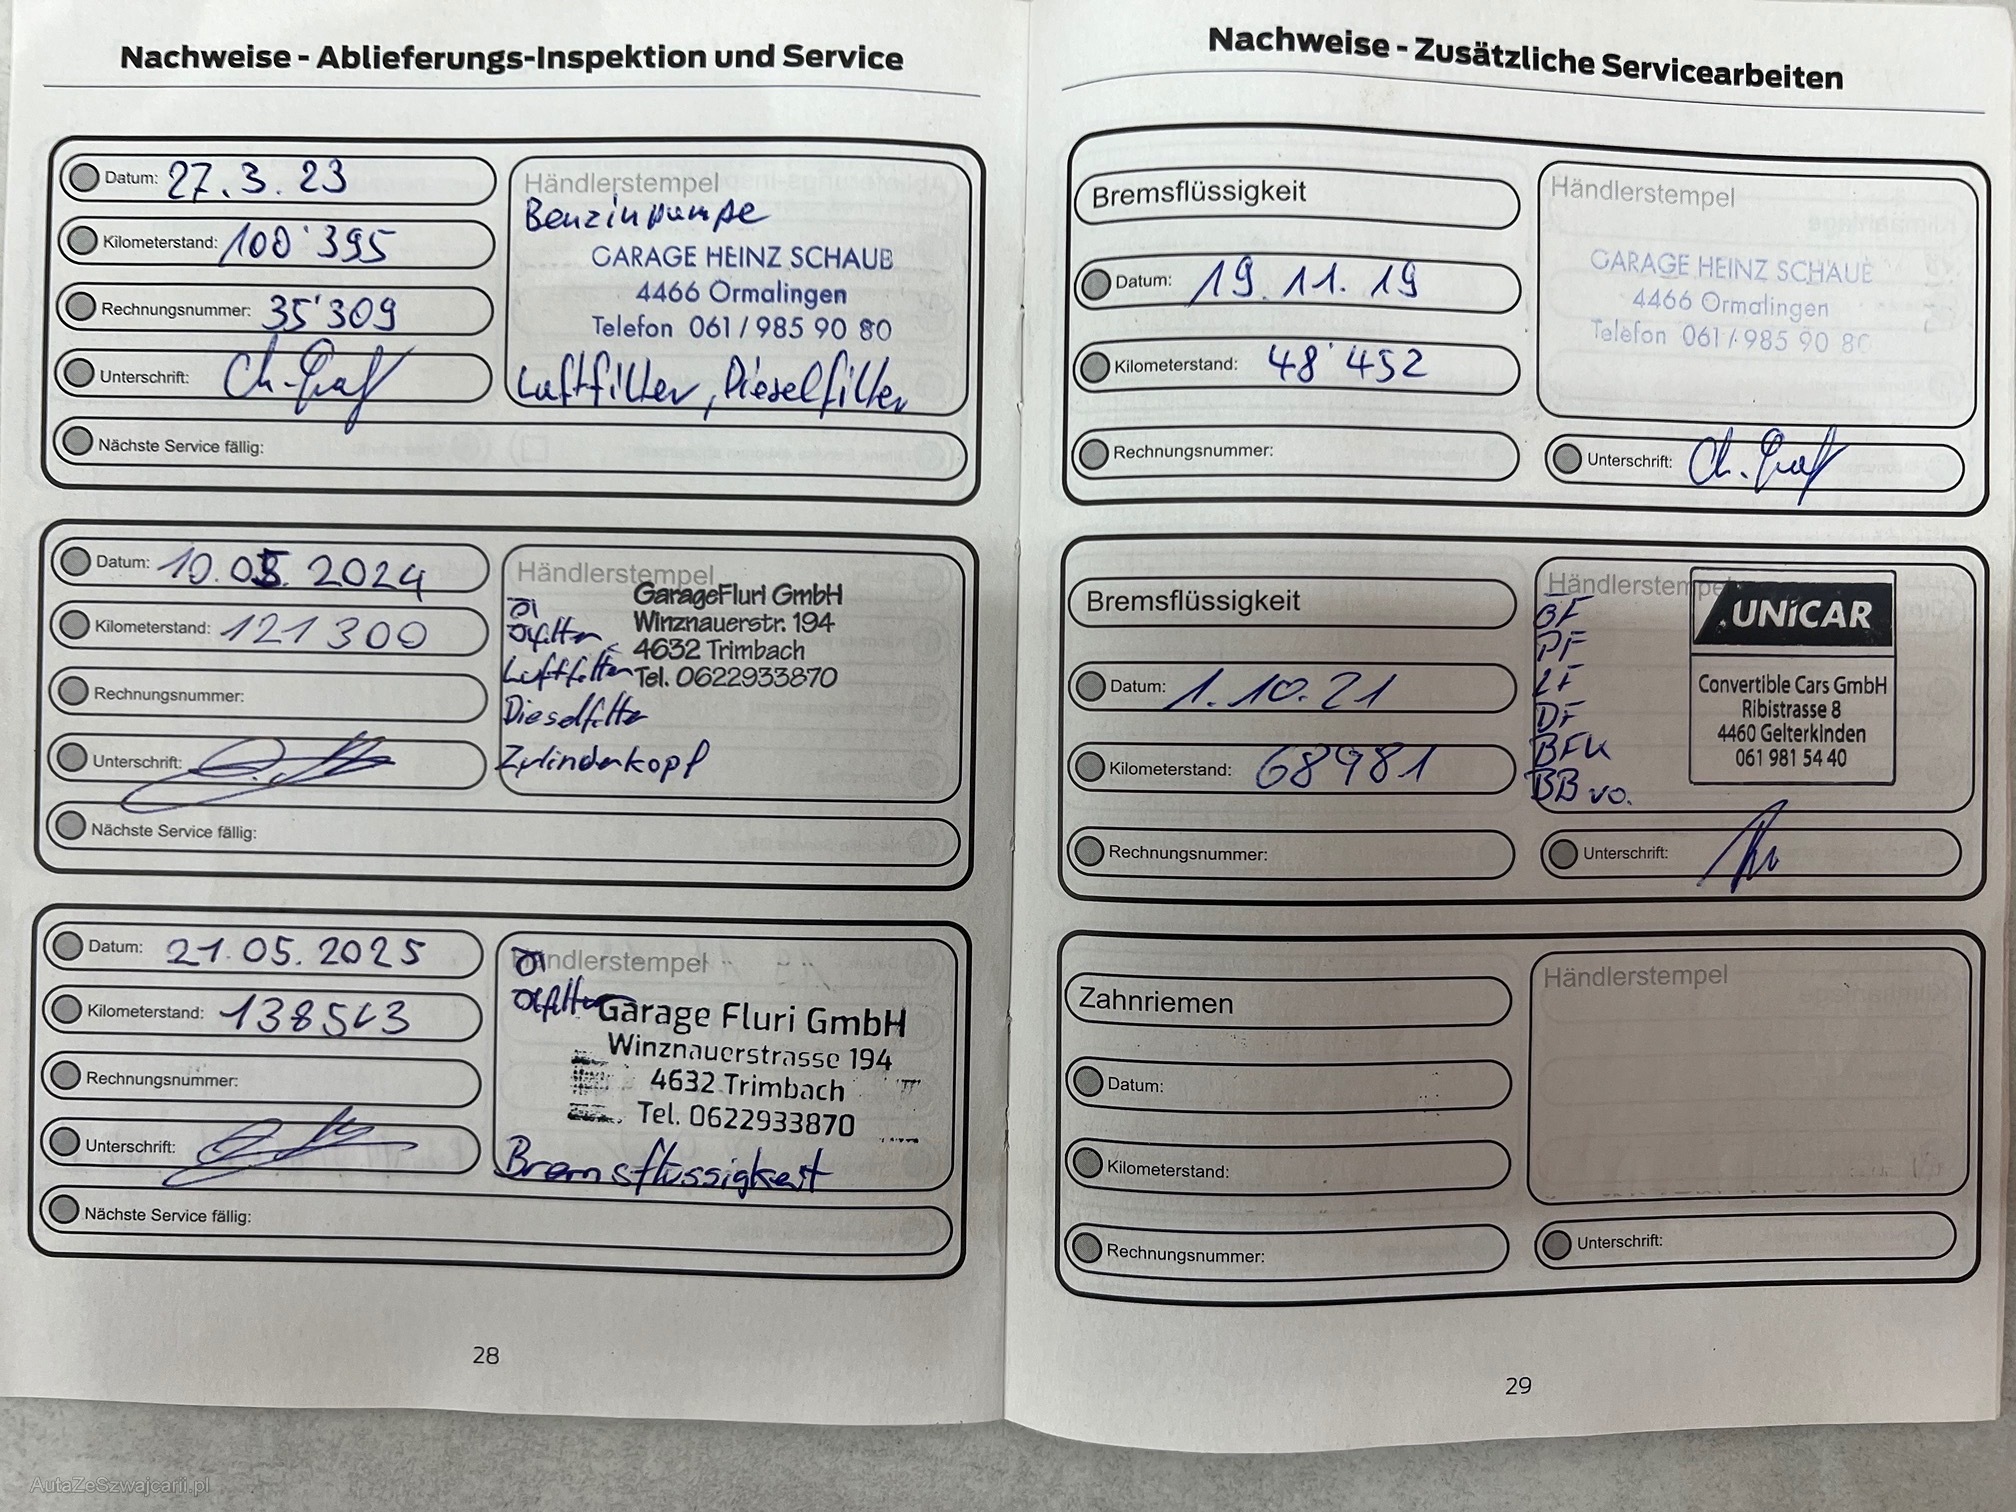 Nachweise - Ablieferungs-Inspektion und Service
Datum: 27.3.23
Kilometerstand: 100'395
Rechnungsnummer: 35'309
Unterschrift: Ch. Graf
Nächste Service fällig:
Händlerstempel
Benzinpumpe
GARAGE HEINZ SCHAUB
4466 Ormalingen
Telefon 061/985 90 80
Luftfilter, Dieselfilter
Datum: 10.05.2024
Kilometerstand: 121300
Rechnungsnummer:
Unterschrift:
Nächste Service fällig:
Händlerstempel
GarageFluri GmbH
Winznauerstr. 194
4632 Trimbach
Tel. 0622933870
Öl
Ölfilter
Luftfilter
Dieselfilter
Zylinderkopf
Datum: 21.05.2025
Kilometerstand:
Rechnungsnummer:
Unterschrift:
Nächste Service fällig:
Händlerstempel
Öl
Ölfilter
Garage Fluri GmbH
Winznauerstrasse 194
4632 Trimbach
Tel. 0622933870
Bremsflüssigkeit
28
Nachweise - Zusätzliche Servicearbeiten
Bremsflüssigkeit
Datum: 19.11.19
Kilometerstand: 48'452
Rechnungsnummer:
Händlerstempel
GARAGE HEINZ SCHAUB
4466 Ormalingen
Telefon 061/985 90 80
Unterschrift: Ch. Graf
Bremsflüssigkeit
Datum: 1.10.21
Kilometerstand: 68981
Rechnungsnummer:
Händlerstempel
BF
PF
LF
DF
BFK
BB vo.
UNiCAR
Convertible Cars GmbH
Ribistrasse 8
4460 Gelterkinden
061 981 54 40
Unterschrift:
Zahnriemen
Datum:
Kilometerstand:
Rechnungsnummer:
Händlerstempel
Unterschrift:
29
AutaZeSzwajcarii.pl